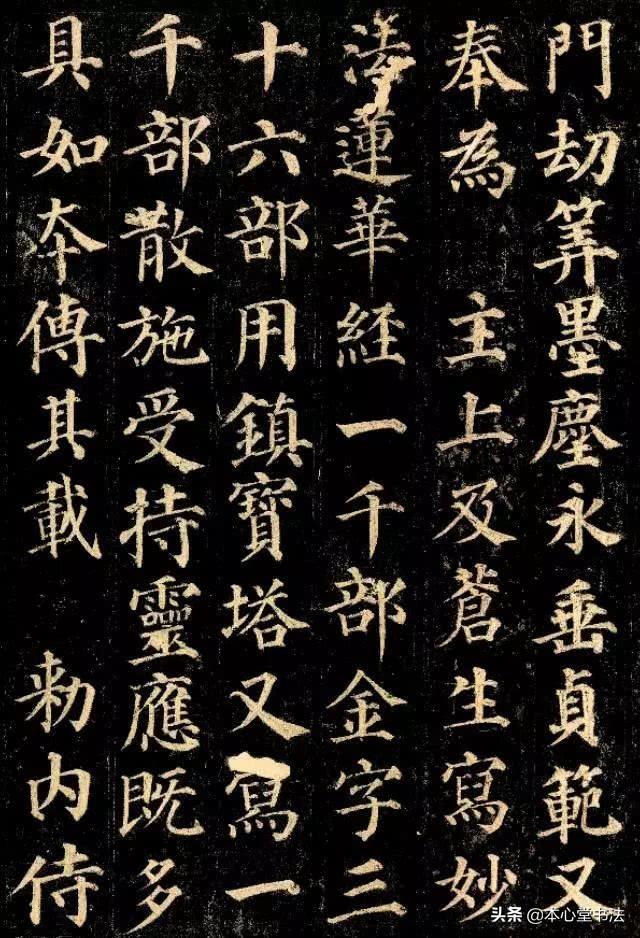 門劫筭墨塵永垂貞範又
奉為 主上及蒼生寫妙
法蓮華経一千部金字三
十六部用鎮寶塔又寫一
千部散施受持靈應既多
具如本傳其載 勑内侍
头条@本心堂书法